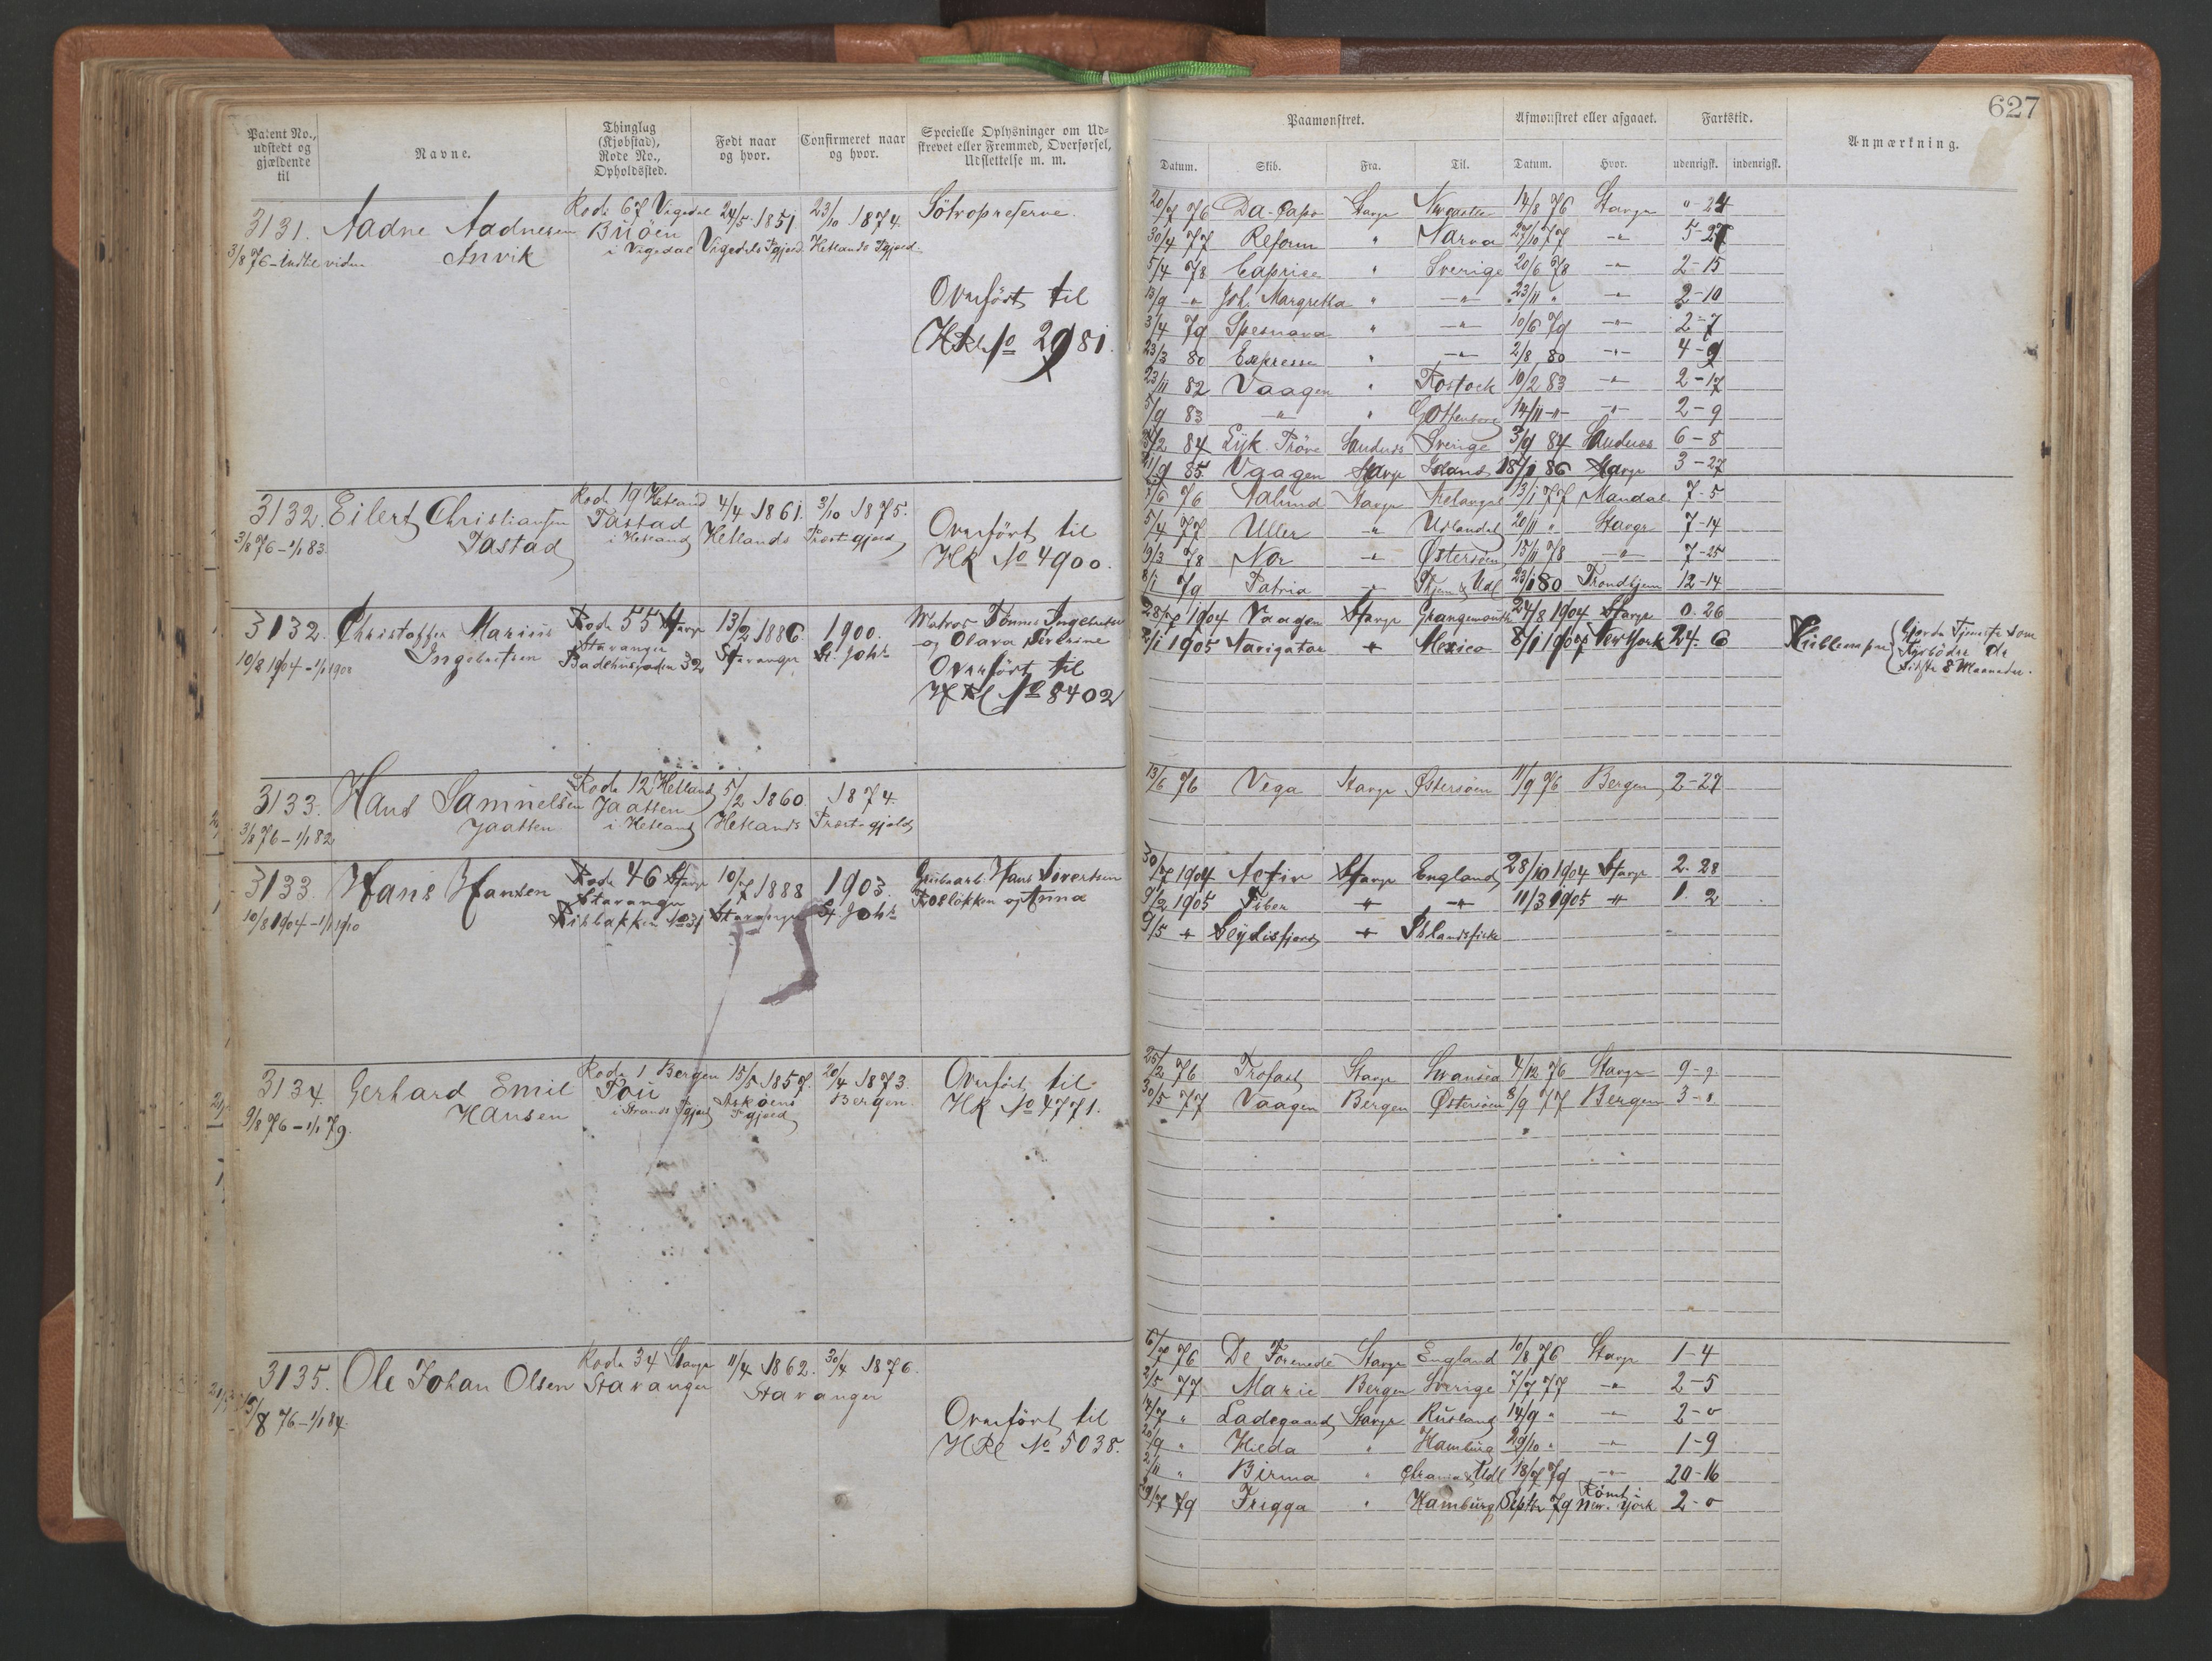 627
Patent No., udstedt og gjældende til
Navne.
Thinglag (Kjøbstad), Rode No., Opholdssted.
Født naar og hvor.
Confirmeret naar og hvor.
Specielle Oplysninger om Udskrevet eller Fremmed, Overførsel, Udslettelse m. m.
Paamønstret.
Afmønstret eller afgaaet.
Fartstid.
Anmærkning.
Datum. Skib. Fra. Til. Datum. Hvor. udenrigsk. indenrigsk.
3131. Aadne Aadnesen Rode 67 Vigedal 24/5 1851 23/10 1874. Søtropreserve.
3/8 76 – indtil vidre Anvik Buøen i Vigedal Vigedals Pgjæld Hetlands Pgjæld
Overført til
HRl No 2981.
20/7 76 Da-Capo Stavgr 14/8 76 Stavgr " 24
30/4 77 Reform " Narva 27/10 77 -"- 5-27
5/4 78 Caprice " Sverige 20/6 78 -"- 2-15
13/9 -"- Joh. Margretha " -"- 23/11 " -"- 2-10
3/4 79 Spesnova " -"- 10/6 79 -"- 2-7
23/3 80 Expressen " -"- 2/8 80 -"- 4-9
23/11 82 Vaagen " Rostock 10/2 83 -"- 2-17
5/9 83 -"- " Gottenborg 14/11 -"- -"- 2-9
84 Lyk. Prøve Sandnes Sverige 3/9 84 Sandnes 6-8
11/9 85 Vaagen Stavgr Island 18/1 86 Stavgr 3-27
3132. Eilert Christiansen Rode 19 Hetland 4/4 1861. 3/10 1875. Overført til
3/8 76 – 1/1 83. Tastad Tastad i Hetland Hetlands Præstegjæld HR No 4900.
7/6 76 Nalund Stavgr 13/1 77 Mandal 7-5
5/4 77 Uller -"- Udlandet 20/11 " Stavgr 7-14
19/3 78 Nor -"- Østersøen 15/11 78 -"- 7-25
8/1 79 Patria -"- Thjem & Udl 23/1 80 Trondhjem 12-14
3132. Christoffer Marius Rode 55 Stavgr 13/2 1886. 1900. Matros Tønnes Ingebretsen
10/8 1904 – 1/1 Ingebretsen Stavanger Badehusgaden 32 Stavanger St. Johs og Olava Serine
Overført til
HRl No 8402
28/7 1904 Vaagen Stavgr Grangemouth 24/8 1904 Stavgr 0. 26
1905 Navigatør -"- Mexico 8/1 1907 New York 24. 6 { Gjorde Tjeneste som Fyrbøder de sidste 8 Maaneder.
3133. Hans Samuelsen Rode 12 Hetland 5/2 1860 1874.
3/8 76 – 1/1 82 Jaatten Jaatten i Hetland Hetlands Præstegjæld
13/6 76 Vega Stavgr Østersøen 11/9 76 Bergen 2-27
3133. Hans Hansen Rode 46 Stavgr 10/7 1888 1903. Hans Sivertsen
10/8 1904 – 1/1 1910 Stavanger No 31 Stavanger St. Johs og Anna
30/7 1904 Activ Stavgr England 28/10 1904 Stavgr 2. 28
9/2 1905 Tiber -"- -"- 11/3 1905 -"- 1. 2
9/5 -"- Seydisfjord -"- Islandsfiske
3134. Gerhard Emil Rode 1 Bergen 15/5 1857. 20/4 1873. Overført til
9/8 76 – 1/1 79. Hansen Tou i Strands Pgjæld Askøens Pgjæld Bergen. HR No 4771.
25/2 76 Trofast Stavgr Swansea 4/12 76 Stavgr 9-9
30/5 77 Vaagen Bergen Østersøen 8/9 77 Bergen 3-8
3135. Ole Johan Olsen Rode 34 Stavgr 11/4 1862. 30/4 1876.
8 76 – 1/1 84 Stavanger Stavanger
Overført til
HRl No 5038.
6/7 76 De Forenede Stavgr England 10/8 76 Stavgr 1-4
2/5 77 Marie Bergen Sverige 7/7 77 -"- 2-5
14/7 " Ladegaard Stavgr Rusland 14/9 " -"- 2-0
20/9 " Hilda " Hamburg 29/10 " -"- 1-9
2/11 " Birma " Chrania & Udl 18/7 79 -"- 20-16
29/7 79 Frigga " Hamburg Septbr 79 Rømt i New-York 2-0